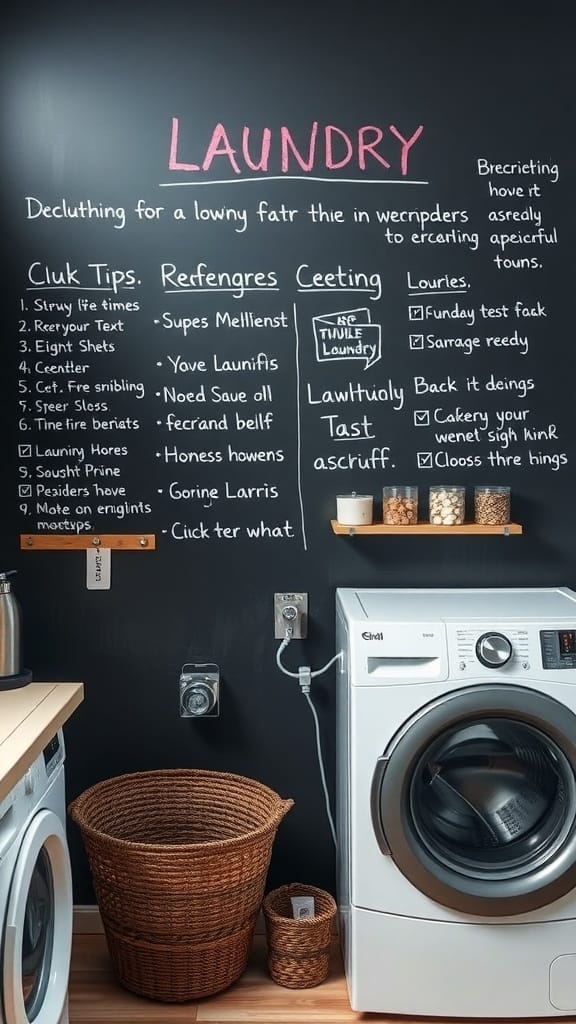 LAUNDRY
Decluthing for a lowny fatr thie in wercnpders
to ercarling
Brecrieting
hove it
asredly
apeicirful
touns.
Cluk Tips.
1. Struy life times
2. Reeryour Text
3. Eight Shets
4. Ceentler
5. Cet. Fre snibling
5. Speer Sloss
6. Tine fire beriats
☑ Launing Hores
9. Sought Prine
☑ Pesiders have
9. Mote on erniglits
moetups.
Rerfengres
• Supes Mellienst
• Yove Launifis
• Noed Saue oll
• fecrand bellf
• Honess howens
• Gorine Larris
• CIick ter what.
Ceeting
THUILE
Laundry
Lawlhtiuoly
Tast
ascruff.
Louries.
☑ Funday test fack
☑ Sarrage reedy
Back it deings
☑ Cakery your
wenet sigh kink
☑ Clooss thre hings